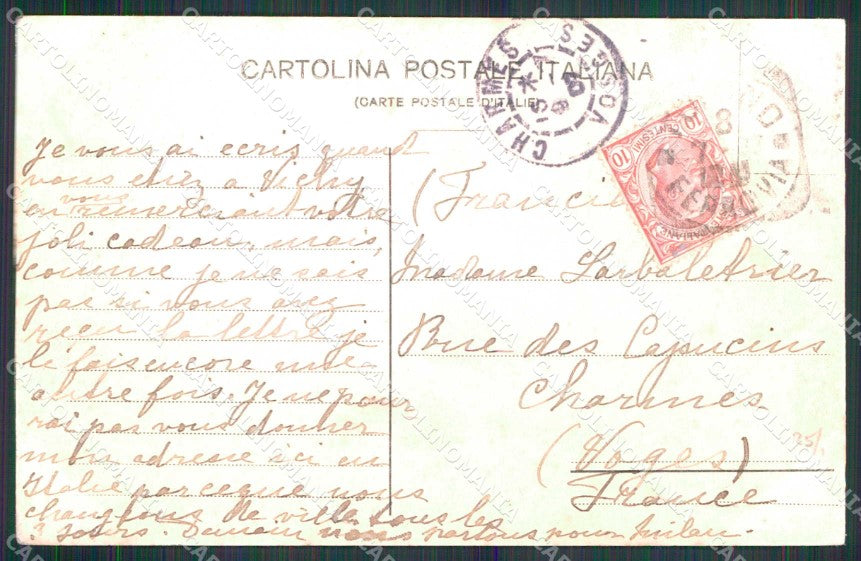 CARTOLINA POSTALE ITALIANA
(CARTE POSTALE D'ITALIE)
CHARMES
VOSGES
10 CENTESIMI 10
FERROVIA
Je vous ai ecris quand
vous etiez a Vichy
en vous remerciant votre
joli cadeau, mais,
comme je ne sais
pas si vous avez
reçu la lettre je
le fais encore une
autre fois. Je ne pour
rai pas vous donner
mon adresse ici en
Italie parceque nous
changeons de ville tous les
3 jours. Demain nous partons pour Milan.
(Francia
Madame Larbaletrier
Rue des Capucins
Charmes
(Voges)
France
25/
CARTOLINOMANIA